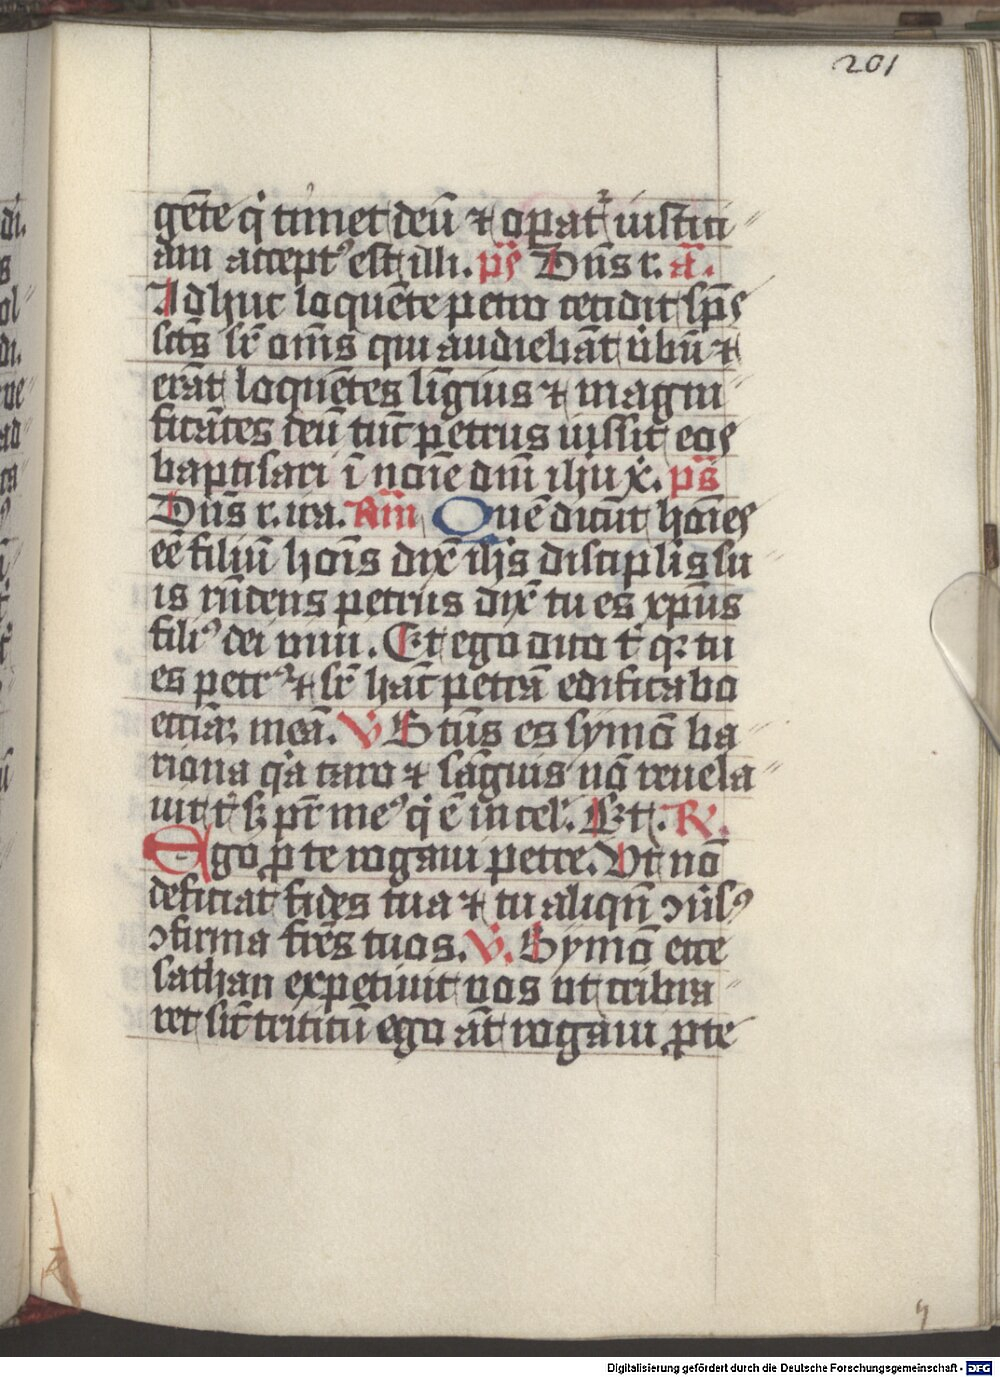 201
gēte q̇ timet deū ⁊ opat᷑ iustici
am accept⁹ est illi. ps̄ Dn̄s r. a̅.
Adhuc loquēte petro cecidit sp̄s
sct̄s sr̄ om̄s qui audiebāt v̇bū ⁊
erāt loquētes līgwis ⁊ magni
ficātes deū tūc petrus iussit eos
baptisari ī noīe dn̄i ih̄u x̄. ps̄
Dn̄s r. ira. Am̄ Quē dicūt hoīes
eē filiū hoīs dix̄ ih̄s discipl̄is su
is rn̄dens petrus dix̄ tu es xp̄us
fili⁹ dei viui. Et ego dico t̄ qꝛ tu
es petr⁹ ⁊ sr̄ hāc petrā edificabo
ecciāꝫ meā. V Btūs es symō ba
riona qͥa caro ⁊ sāguis nō reuela
uit tͥ sꝫ pr̄ me⁹ q̇ ē in cel̓. Et. R̄.
Ego ꝓ te rogaui petre. Vt nō
deficiat fides tua ⁊ tu aliqn̄ ꝯūs⁹
ꝯfirma fr̄es tuos. V. Symō ecce
sathan expetiuit vos vt cribra
ret sic̄ triticū ego āt rogaui ꝓte
Digitalisierung gefördert durch die Deutsche Forschungsgemeinschaft - DFG